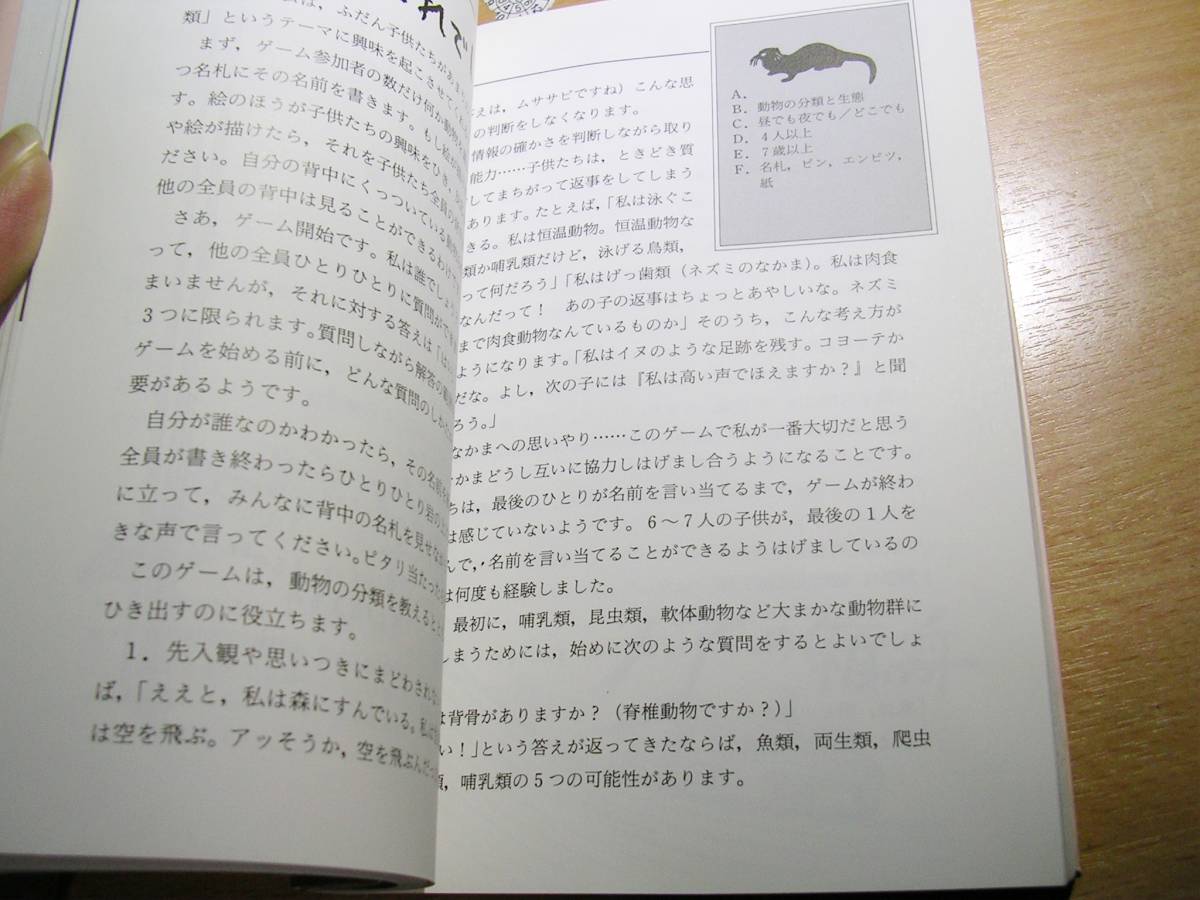 れで
は，ふだん子供たちがあ
類」というテーマに興味を起こさせてく
まず，ゲーム参加者の数だけ何か動物
つ名札にその名前を書きます。もし絵が
す。絵のほうが子供たちの興味をひき，
や絵が描けたら，それを子供たち全員の
ださい。自分の背中にくっついている動
他の全員の背中は見ることができるわけ
さあ，ゲーム開始です。私は誰でしょう
って，他の全員ひとりひとりに質問がで
まいませんが，それに対する答えは「は
3つに限られます。質問しながら解答の
ゲームを始める前に，どんな質問のしか
要があるようです。
自分が誰なのかわかったら，その名前を
全員が書き終わったらひとりひとり岩の
に立って，みんなに背中の名札を見せな
きな声で言ってください。ピタリ当たった
このゲームは，動物の分類を教えると
ひき出すのに役立ちます。
1．先入観や思いつきにまどわされな
ば，「ええと，私は森にすんでいる。私は
は空を飛ぶ。アッそうか，空を飛ぶんだっ
えは，ムササビですね）こんな思
の判断をしなくなります。
情報の確かさを判断しながら取り
能力……子供たちは，ときどき質
してまちがって返事をしてしまう
あります。たとえば，「私は泳ぐこ
きる。私は恒温動物。恒温動物な
類か哺乳類だけど，泳げる鳥類，
って何だろう」「私はげっ歯類（ネズミのなかま）。私は肉食
なんだって！　あの子の返事はちょっとあやしいな。ネズミ
まで肉食動物なんているものか」そのうち，こんな考え方が
ようになります。「私はイヌのような足跡を残す。コヨーテか
だな。よし，次の子には『私は高い声でほえますか？』と聞
ろう。」
なかまへの思いやり……このゲームで私が一番大切だと思う
かまどうし互いに協力しはげまし合うようになることです。
ちは，最後のひとりが名前を言い当てるまで，ゲームが終わ
は感じていないようです。6〜7人の子供が，最後の1人を
んで，名前を言い当てることができるようはげましているの
は何度も経験しました。
最初に，哺乳類，昆虫類，軟体動物など大まかな動物群に
しまうためには，始めに次のような質問をするとよいでしょ
は背骨がありますか？（脊椎動物ですか？）」
い！」という答えが返ってきたならば，魚類，両生類，爬虫
類，哺乳類の5つの可能性があります。
A．
B．動物の分類と生態
C．昼でも夜でも／どこでも
D．4人以上
E．7歳以上
F．名札，ピン，エンピツ，
紙